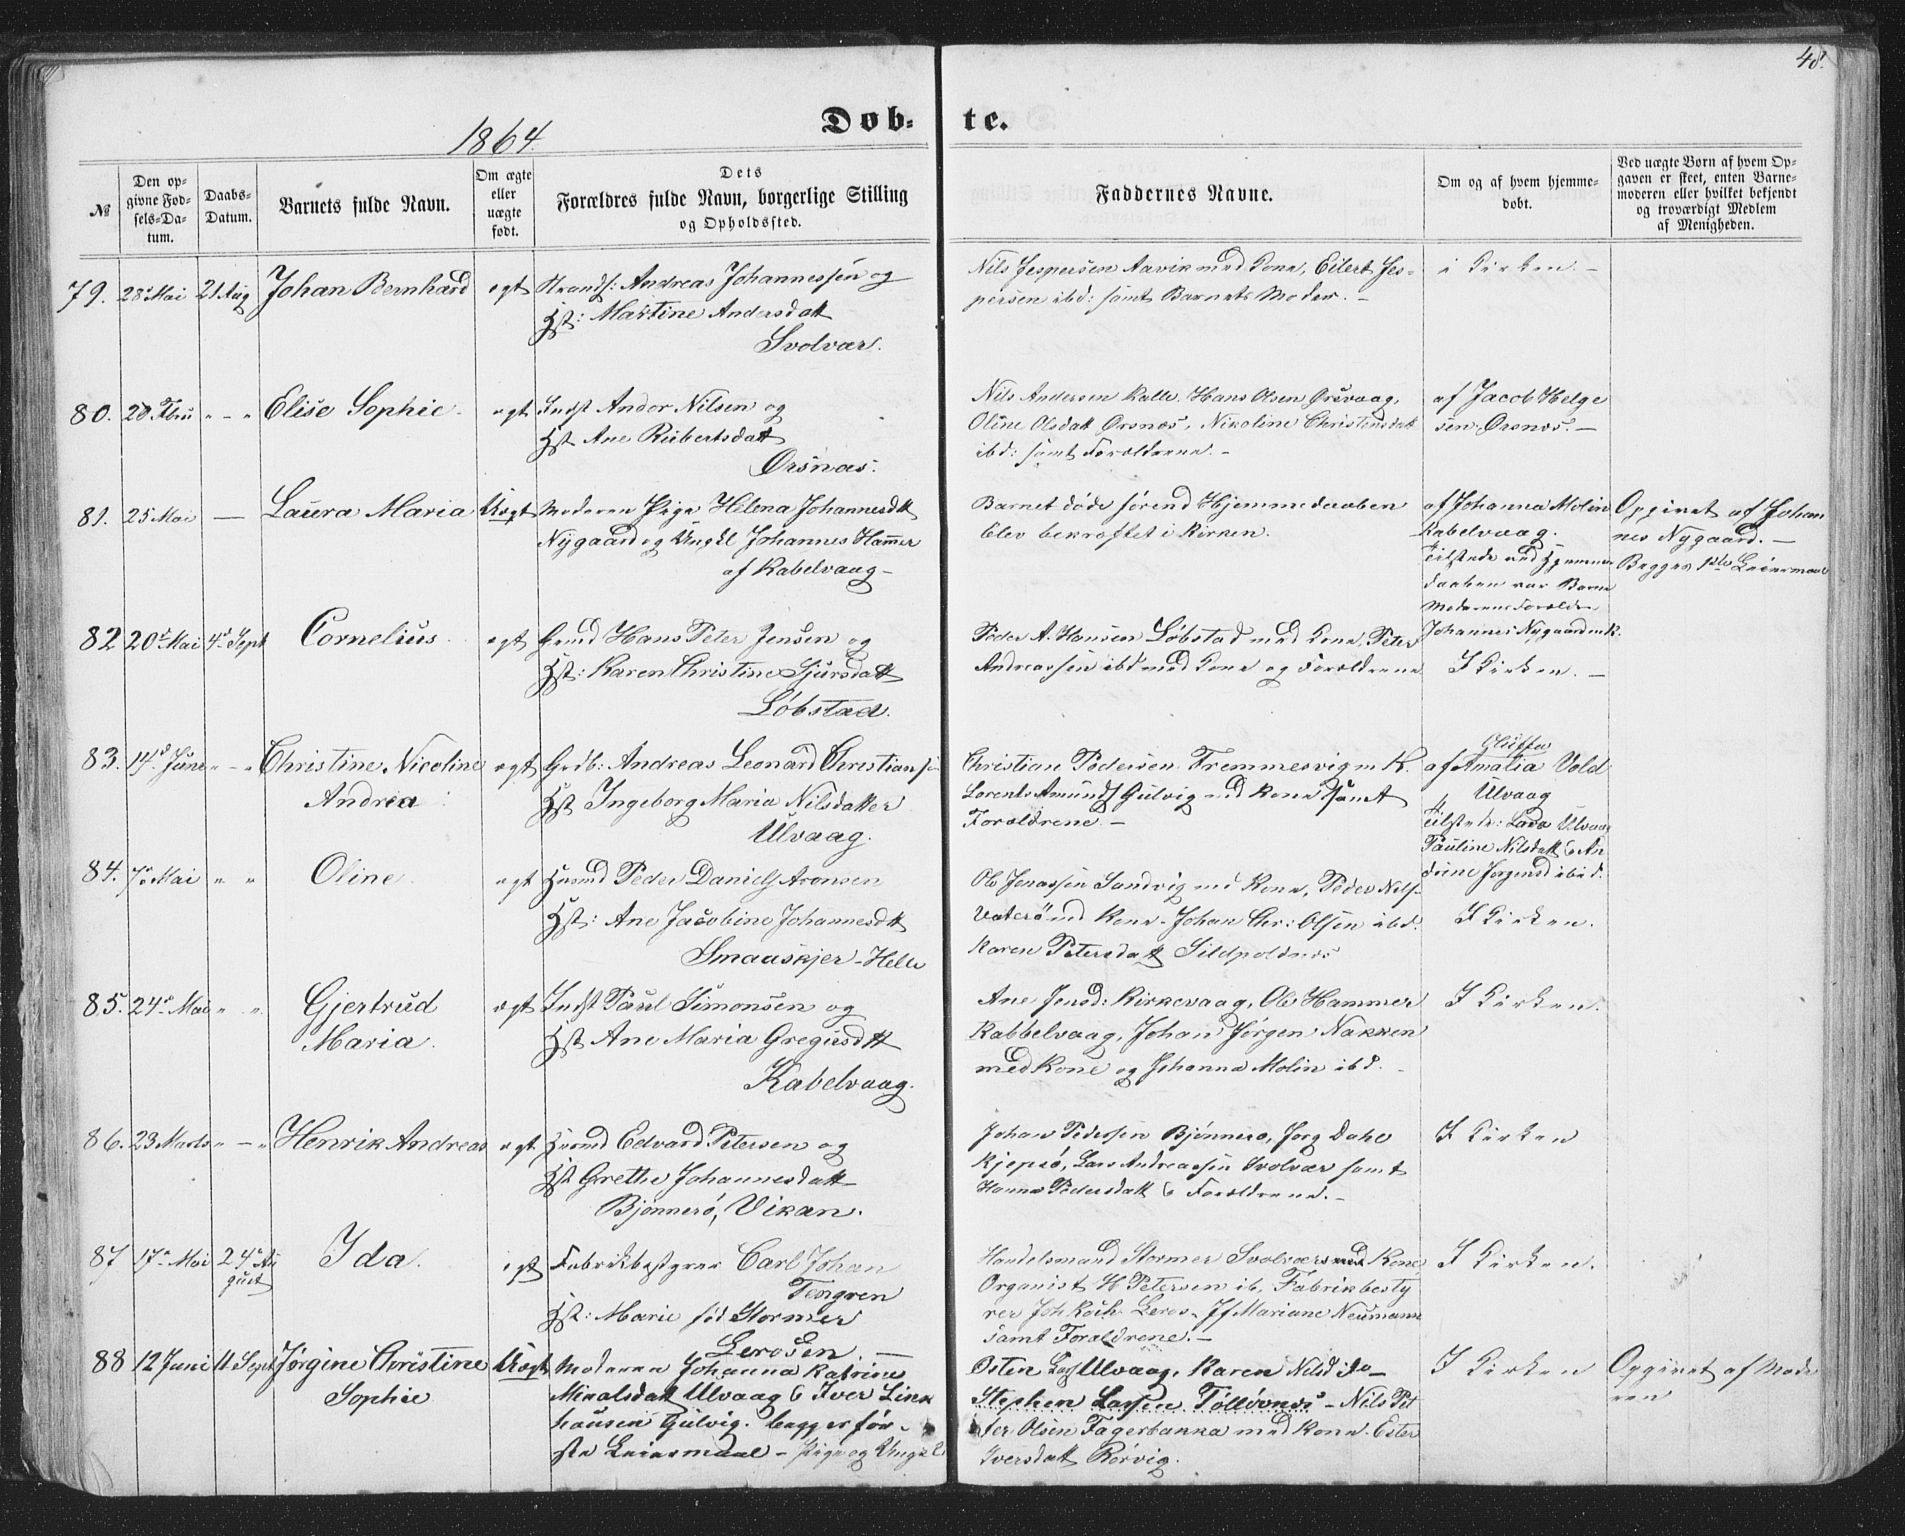 48.
Døb- te.
1864.
№
Den op-
givne Fød-
sels-Da-
tum.
Daabs-
Datum.
Barnets fulde Navn.
Om ægte
eller
uægte
født.
Dets
Forældres fulde Navn, borgerlige Stilling
og Opholdssted.
Faddernes Navne.
Om og af hvem hjemme-
døbt.
Ved uægte Børn af hvem Op-
gaven er skeet, enten Barne-
moderen eller hvilket bekjendt
og troværdigt Medlem
af Menigheden.
79. 28 Mai 21 Aug Johan Bernhard ægt Strands: Andreas Johannessen og
Hst: Martine Andersdatt
Svolvær.
Nils Jespersen Aavik med Kone, Eilert Jes-
persen ibd: samt Barnets Moder. –
i Kirken. –
80. 28 Fbru „ – „ Elise Sophie. ægt Indst Andor Nilsen og
Hst Ane Riibertsdatt
Ørsnæs.
Nils Andersen Kalle, Hans Olsen Ørsvaag,
Oline Olsdatt Ørsnæs, Nikoline Christensdatt
ibd: samt Forældrene. –
af Jacob Helge
sen Ørsnæs. –
81. 25 Mai – Laura Maria Uægt Moderen Pige Helena Johannesdtt
Nygaard og Ungkl Johannes Hammer
af Kabelvaag –
Barnet døde førend Hjemmedaaben
blev bekræftet i Kirken.
af Johanna Molin
Kabelvaag.
Tilstede ved Hjemme
daaben var Barne
Moderens Forældre
Johannes Nygaard m K.
Opgivet af Johan
nes Nygaard. –
Begges 1ste Leiermaal
82 20de Mai 4de Sept Cornelius. ægt Grmd Hans Peter Jensen og
Hst: Karen Christine Sjursdatt
Løbstad.
Peder A. Hansen Løbstad med Kone, Peter
Andreassen ibd med Kone og Forældrene
I Kirken. –
83. 14d Juni „ – „ Christine Nicoline
Andrea
ægt Grdb: Andreas Leonard Christians:
Hst Ingeborg Maria Nilsdatter
Ulvaag.
Christian Pedersen Fremmesvig m K.
Lorents Amunds Gulvig med Kone samt
Forældrene. –
af Amalia Vold
Ulvaag
Tilstede: Lava Ulvaag
Pauline Nilsdatt & An
drine Jørgensd ibid.
84. 7de Mai „ „ Oline. ægt Husmd Peder Daniels Aronsen
Hst: Ane Jacobine Johannesdtt
Smaaskjer – Helle
Ole Jonassen Sandvig med Kone, Peder Nils-
Vaterø md Kone – Johan Chr: Olsen ibd.
Karen Petersdatt Sildpoldnæs
I Kirken.
85. 24de Mai „ „ Gjertrud
Maria.
ægt Indst Paul Simonsen og
Hst Ane Maria Gregusdtt
Kabelvaag.
Ane Jensd: Kirkevaag, Ole Hammer
Kabbelvaag, Johan Jørgen Nakken
med Kone og Johanna Molin ibd. –
I Kirken.
86. 23 Marts „ – „ Henrik Andreas ægt Husmd Edvard Petersen og
Hst Grethe Johannesdatt
Bjønnerø, Vikan.
Johan Pedersen Bjønnerø, Jørg Dahl
Kjepsø, Lars Andreassen Svolvær samt
Hanna Pedersdatt & Forældrene. –
I Kirken
87 17de Mai 24de Au
gust
Ida. ægt Fabrikbestyrer Carl Johan
Tengren
Hst: Marie fød Stormer
Lerosen. –
Handelsmand Stormer Svolvær med Kone
Organist H Petersen ib, Fabrikbesty
rer Joh Koch Leros. Jf Mariane Neumann
samt Forældrene. –
I Kirken.
88 12 Juni 11 Sept Jørgine Christine
Sophie
Uægt Moderen Johanna Katrine
Mikalsdatt Ulvaag & Iver Link
hausen Gulvig. begges før-
ste Leiermaal – Pige og Ungkl
Osten Lars Ulvaag, Karen Nilsd do –
Stephen Larsen Tøllevnes – Nils Pet
ter Olsen Fagerbakka med Kone. Ester
Iversdatt Rørvig.
I Kirken
Opgivet af Mode
ren